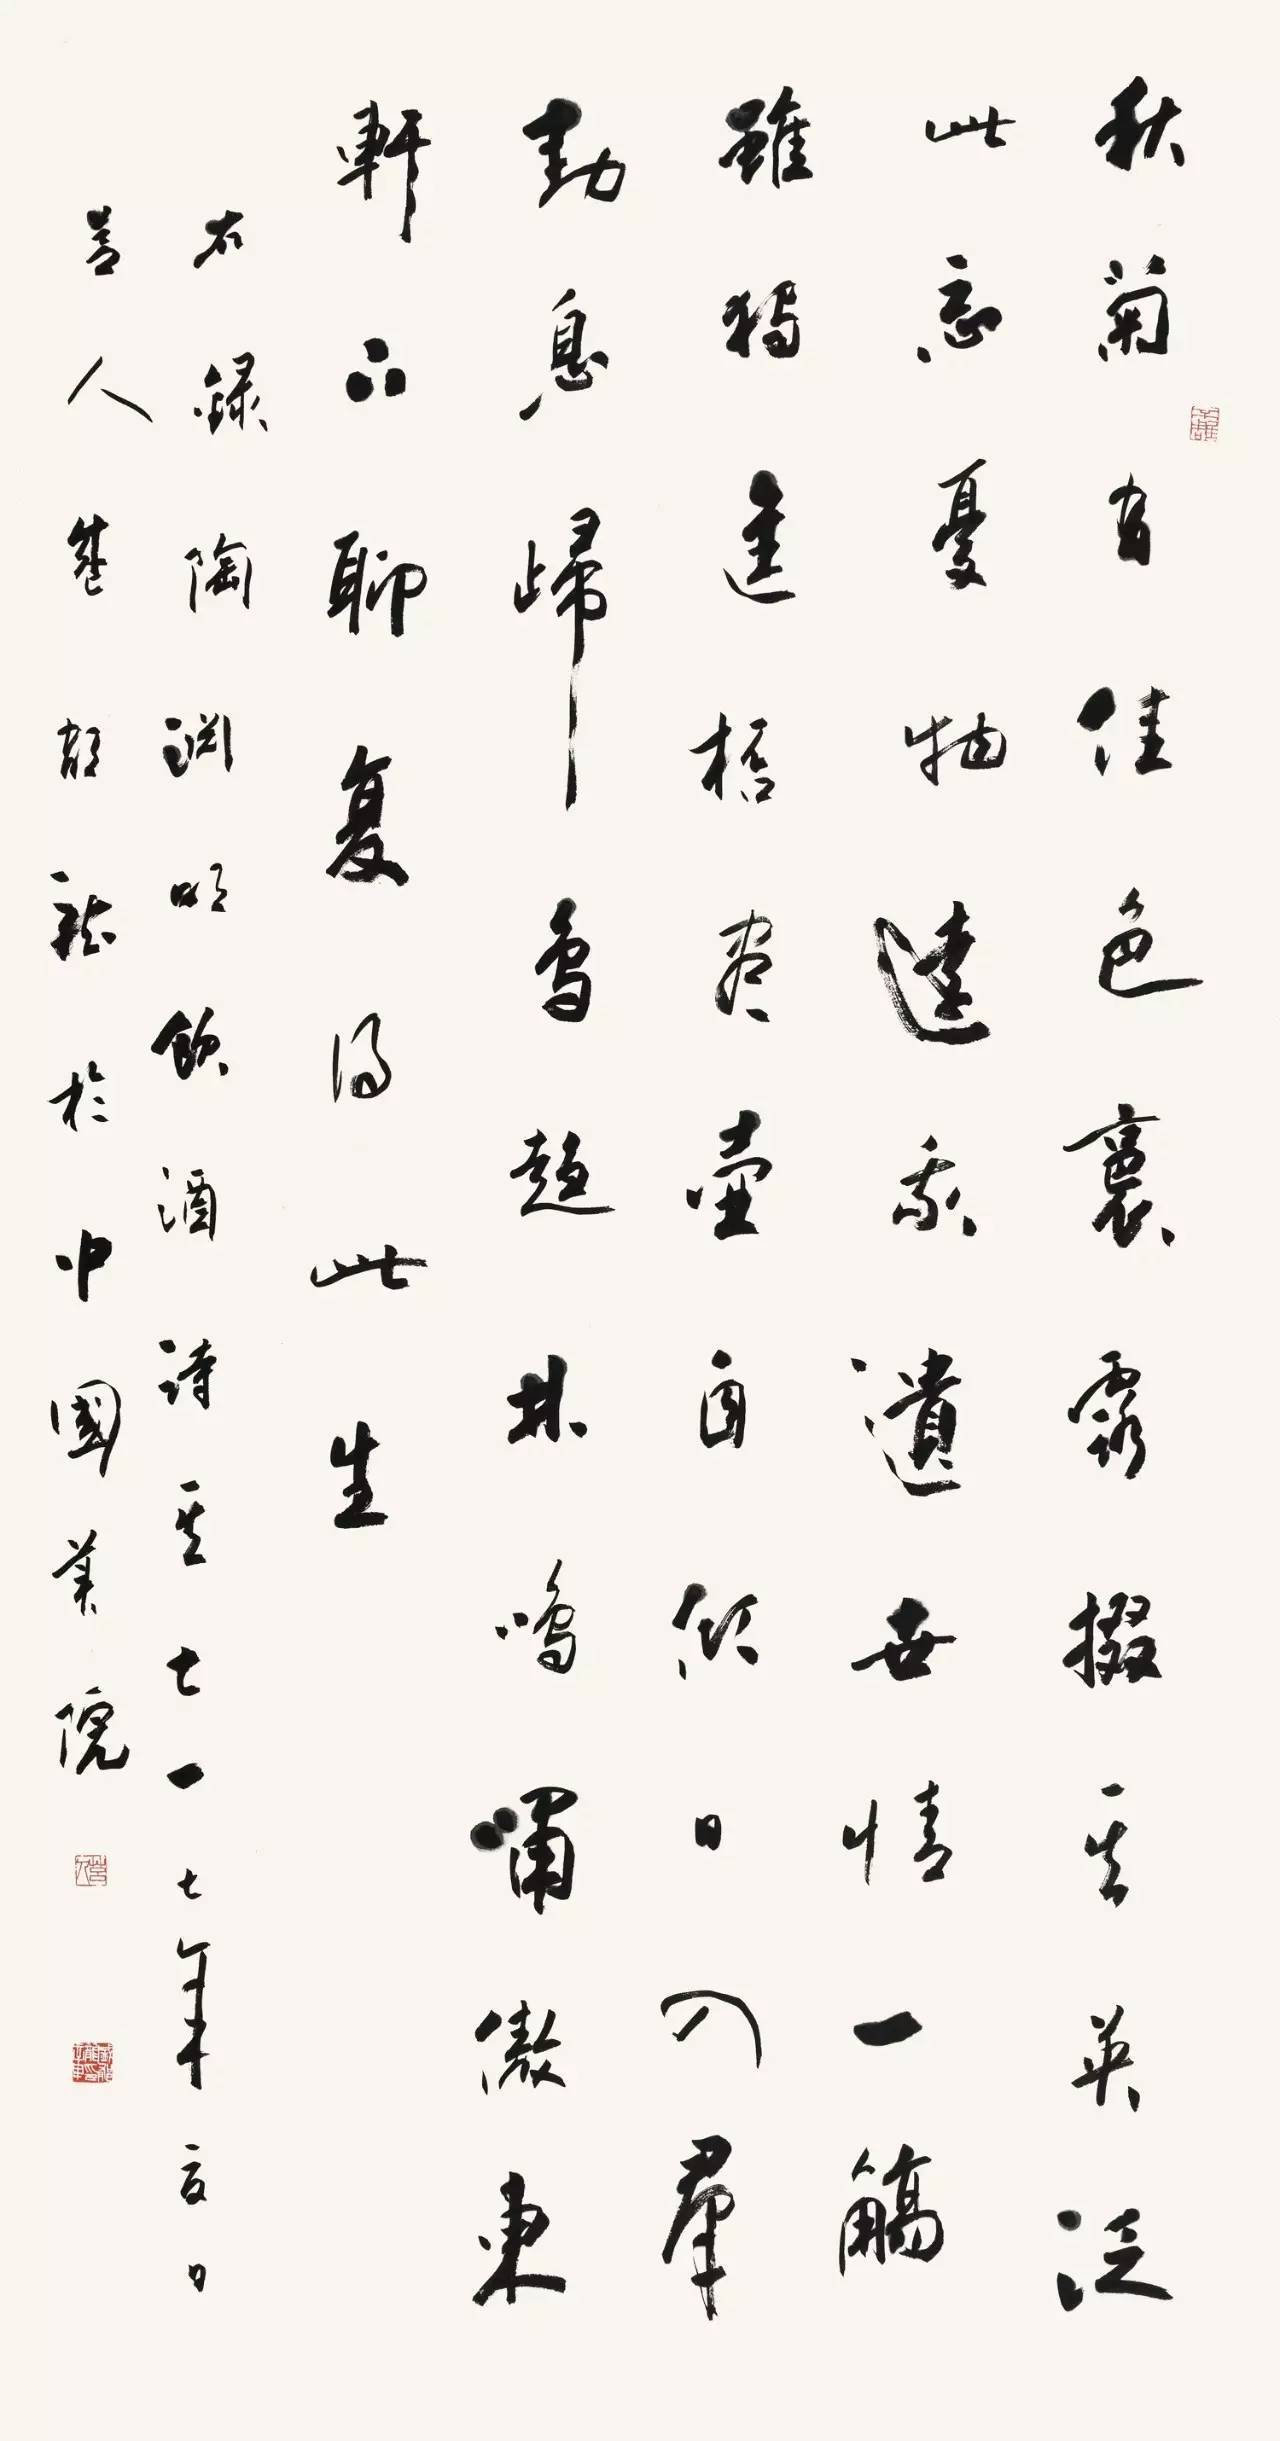 秋菊有佳色裛露掇其英泛
此忘憂物遠我遺世情一觴
雖獨進桮盡壺自傾日入羣
動息歸鳥趨林鳴嘯傲東
軒下聊复得此生
右錄陶淵明飲酒詩其七一七年夏日
莒人於中國美院